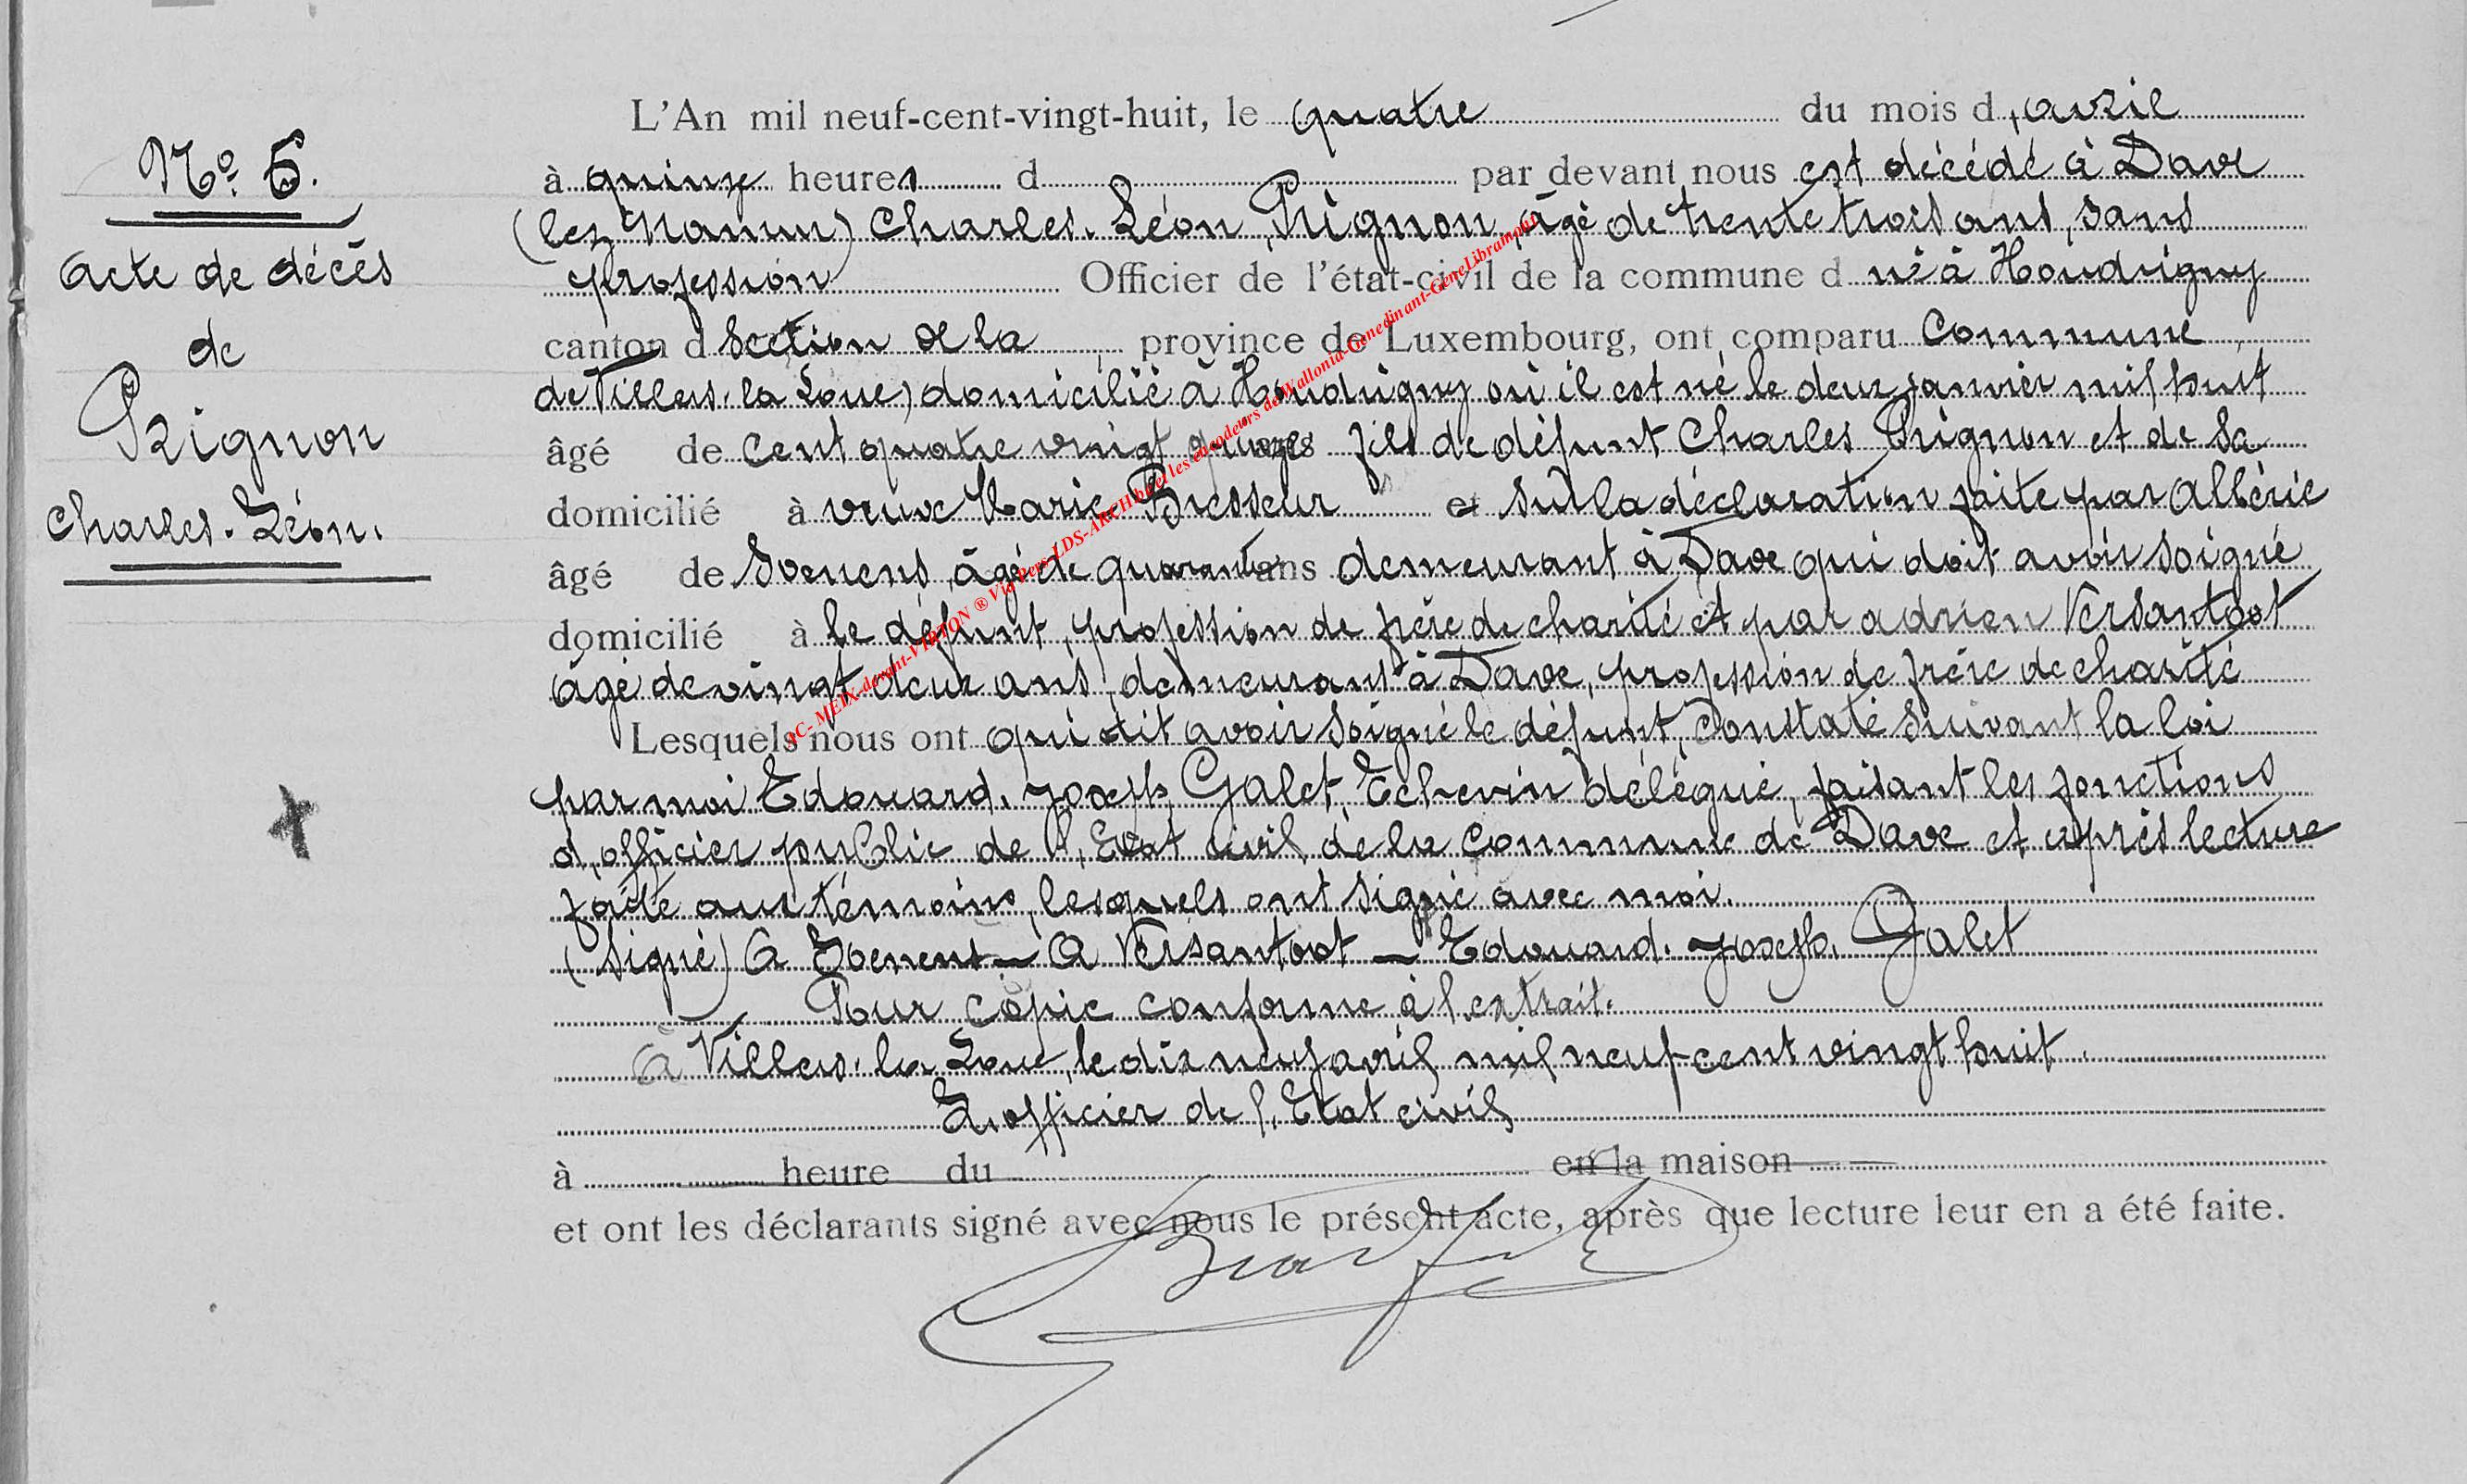 L'An mil neuf-cent-vingt-huit, le quatre du mois d'avril
N° 6.
à quinze heures d par devant nous est décédé à Dave
(lez Namur) Charles-Léon Prignon, âgé de trente trois ans, sans
Acte de décès
profession Officier de l'état-civil de la commune d né à Houdrigny
de
canton d section de la province de Luxembourg, ont comparu Commune
de Villers-la-Loue) domicilié à Houdrigny où il est né le deux janvier mil huit
Prignon
âgé de cent quatre vingt quinze fils de défunt Charles Prignon et de sa
Charles-Léon.
domicilié à veuve Marie Bresseur et sur la déclaration faite par Albéric
âgé de âgé de quarante ans demeurant à Dave qui doit avoir soigné
domicilié à le défunt, profession de frère de charité et par Adrien Versantvoot
âgé de vingt deux ans, demeurant à Dave, profession de frère de charité
Lesquels nous ont qui dit avoir soigné le défunt, Constaté suivant la loi
par moi Edouard-Joseph Galet Echevin délégué, faisant les fonctions
d'officier public de l'Etat civil de la Commune de Dave et après lecture
faite aux témoins, lesquels ont signé avec moi.
(signé) A - A Versantvoot - Edouard-Joseph Galet
Pour copie conforme à l'extrait.
A Villers-la-Loue, le dix neuf avril mil neuf cent vingt huit.
L'officier de l'Etat civil
à heure du en la maison
et ont les déclarants signé avec nous le présent acte, après que lecture leur en a été faite.